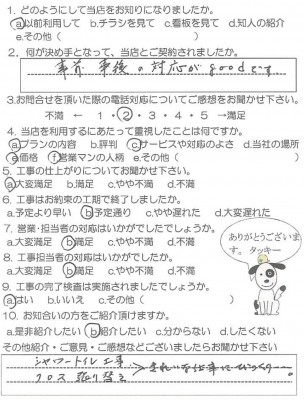 1. どのようにして当店をお知りになりましたか。
a以前利用して b.チラシを見て c.看板を見て d.知人の紹介
e.その他(　　　)
2. 何が決め手となって、当店とご契約されましたか。
事前 事後の対応がgoodです
3.お問合せを頂いた際の電話対応についてご感想をお聞かせ下さい。
不満 ← 1・2・3・4・5 →満足
4. 当店を利用するにあたって重視したことは何ですか。
aプランの内容 b.評判 cサービスや対応のよさ d.当社の場所
e価格 f営業マンの人柄 e.その他(　　　)
5. 工事の仕上がりについてお聞かせ下さい。
a大変満足 b.満足 c.やや不満 d.不満
6. 工事はお約束の工期で終了しましたか。
a.予定より早い b予定通り c.やや遅れた d.大変遅れた
7. 営業・担当者の対応はいかがでしたでしょうか。
a.大変満足 b満足 c.やや不満 d.不満
8. 工事担当者の対応はいかがでしたか。
a.大変満足 b満足 c.やや不満 d.不満
ありがとうございま
す。タッキー
9. 工事の完了検査は実施されましたでしょうか。
aはい b.いいえ c.その他(　　　)
10. お知合いの方をご紹介頂けますか。
a.是非紹介したい b紹介したい c.分からない d.したくない
その他紹介・ご意見・ご感想などございましたらお聞かせ下さい
シャワートイレ工事
クロス張り替え
きれいな仕事に